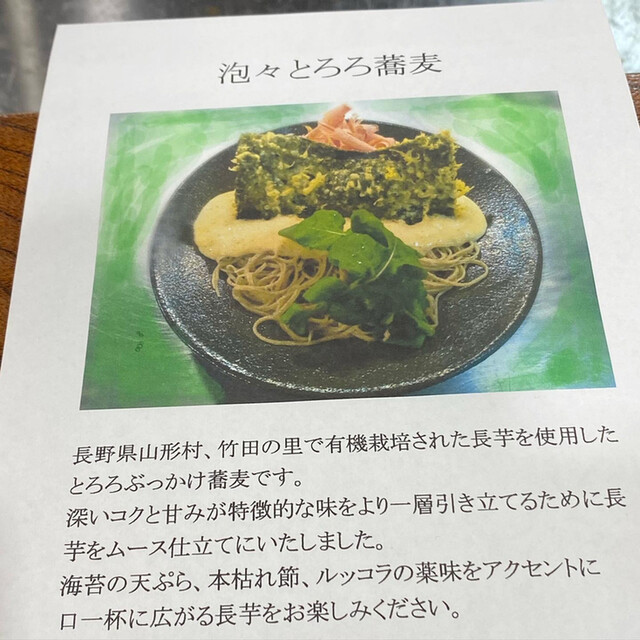 泡々とろろ蕎麦
長野県山形村、竹田の里で有機栽培された長芋を使用した
とろろぶっかけ蕎麦です。
深いコクと甘みが特徴的な味をより一層引き立てるために長
芋をムース仕立てにいたしました。
海苔の天ぷら、本枯れ節、ルッコラの薬味をアクセントに
口一杯に広がる長芋をお楽しみください。